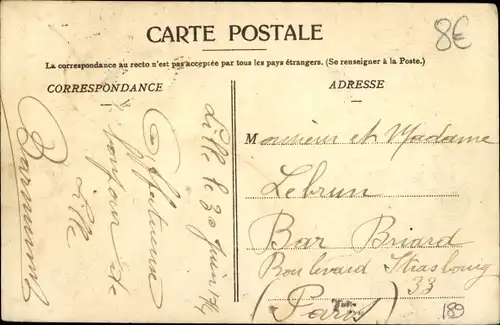 CARTE POSTALE
8€
La correspondance au recto n'est pas acceptée par tous les pays étrangers. (Se renseigner à la Poste.)
CORRESPONDANCE
ADRESSE
Lille le 30 Juin
Affectueux
bonjour de
Lille
Monsieur et Madame
Lebrun
Bar Briard
Boulevard Strasbourg
33
(Paris)
189